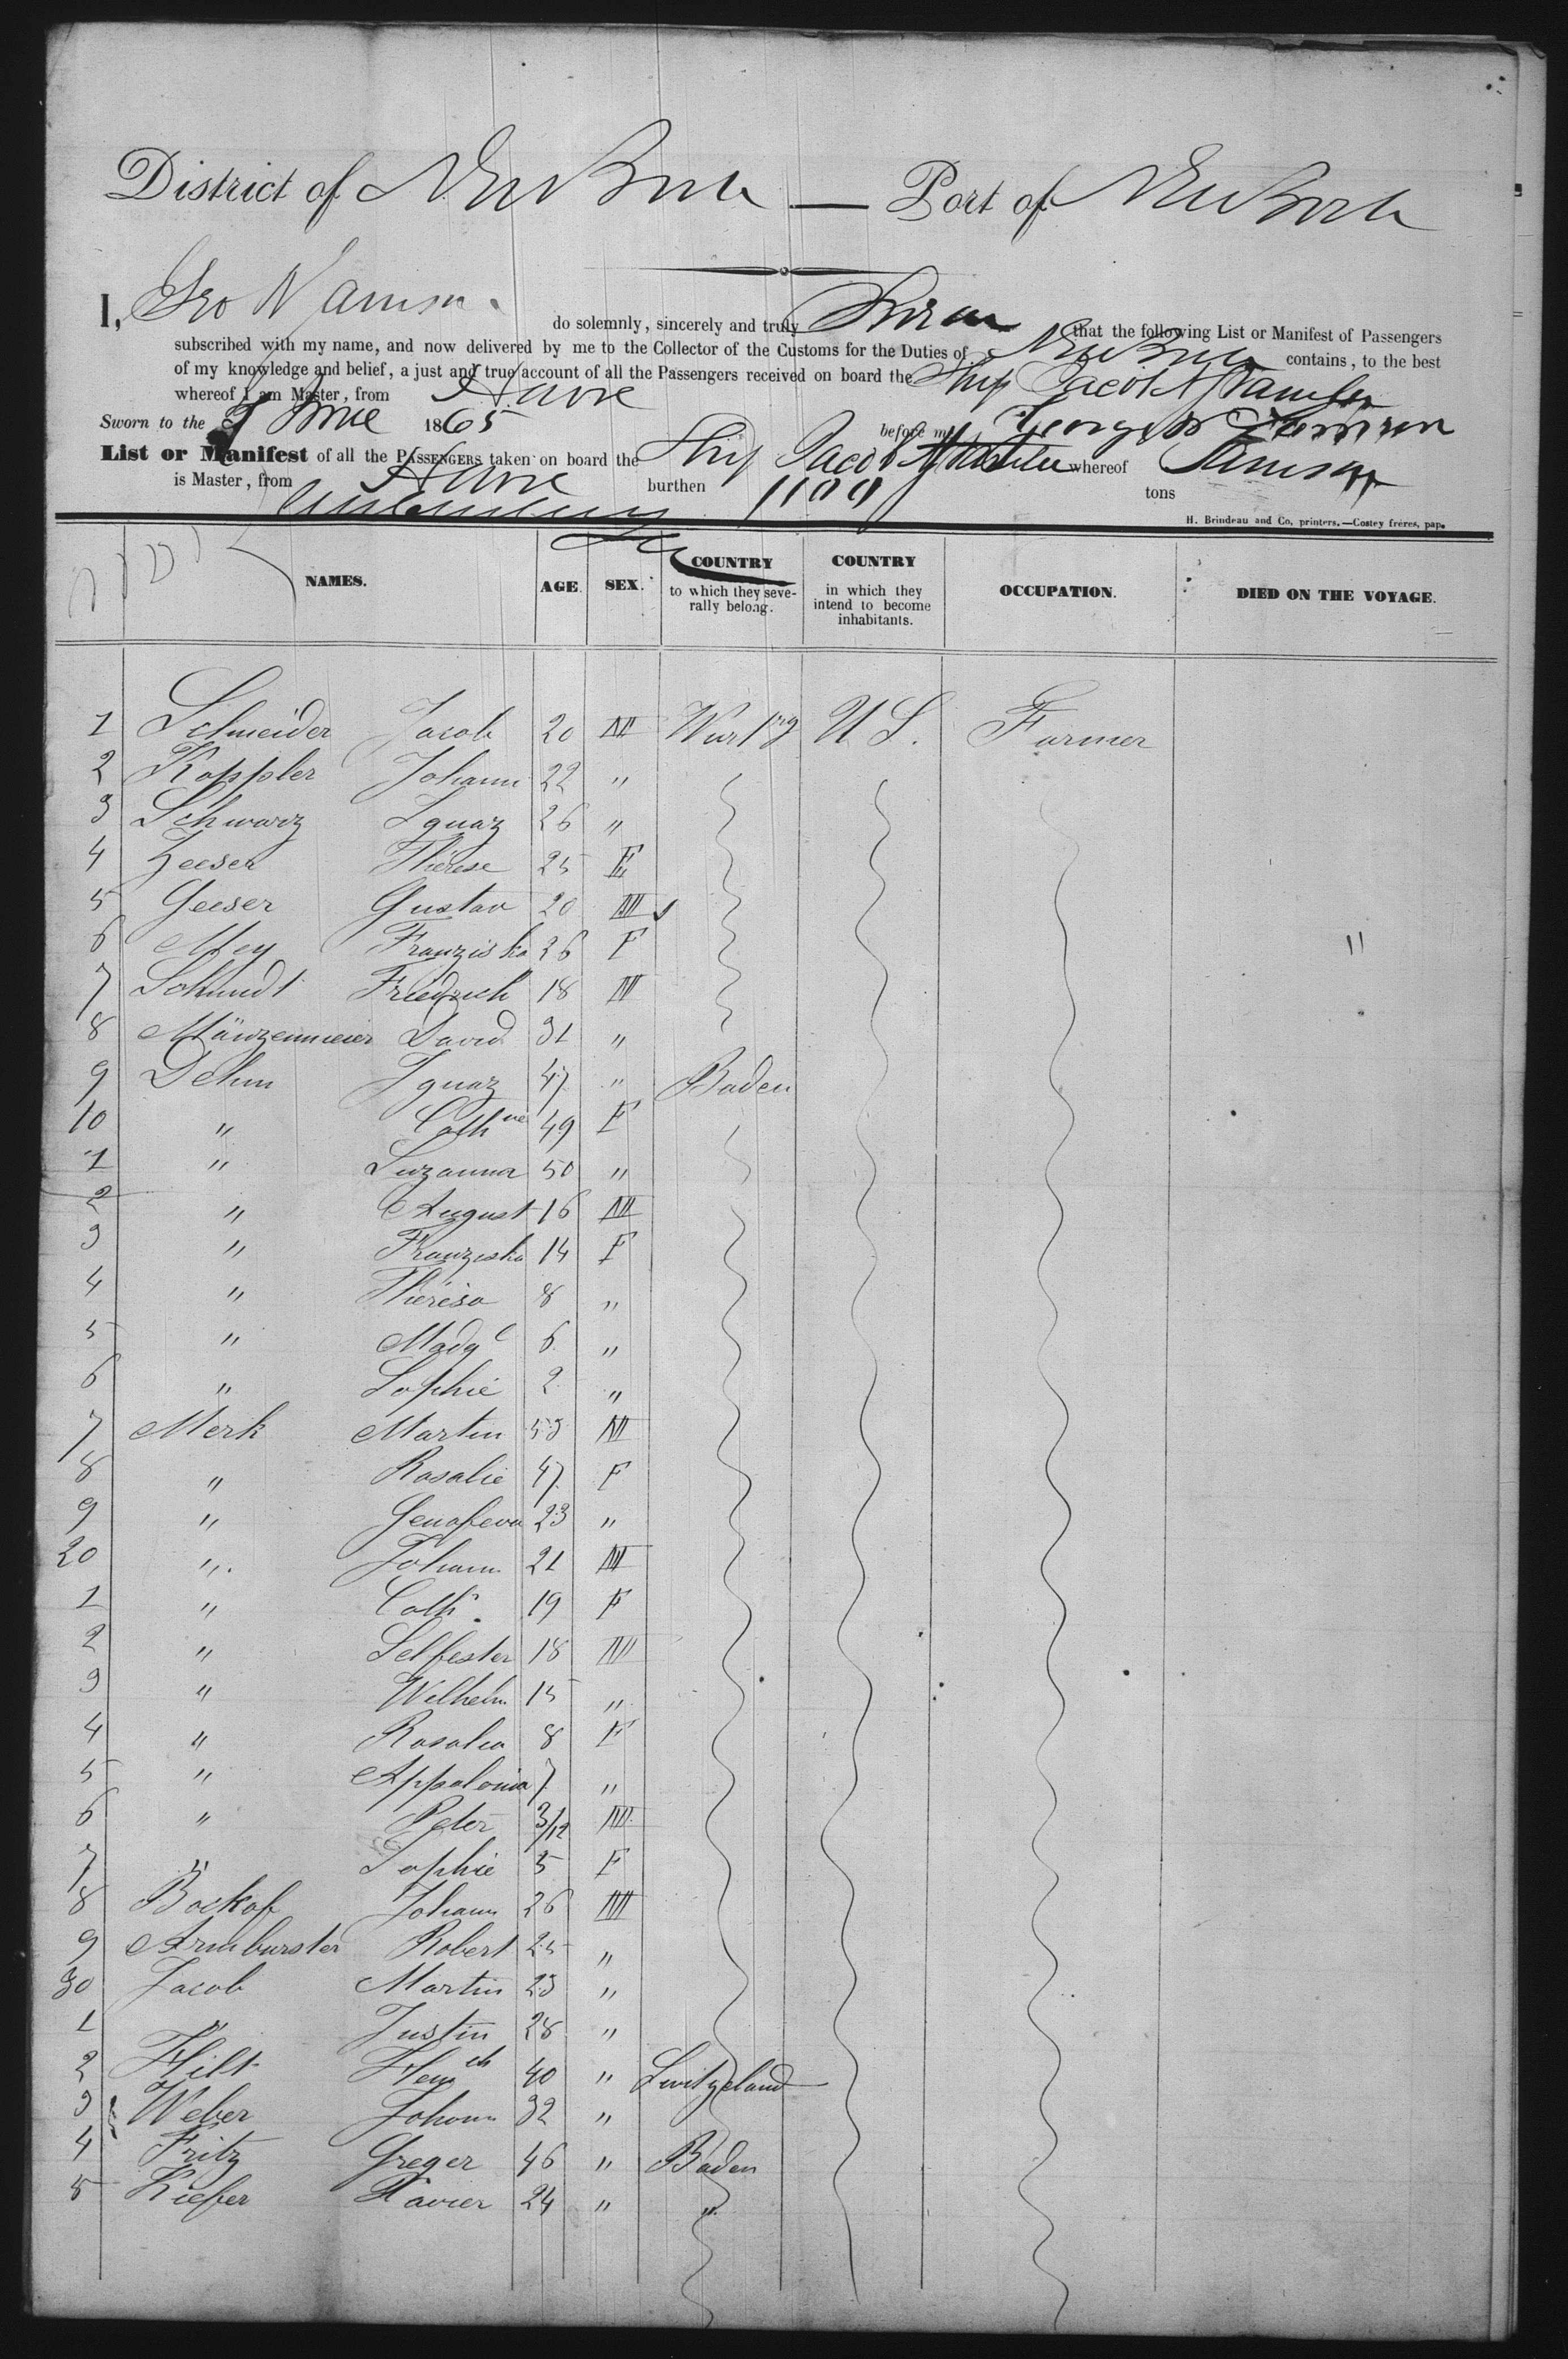 District of New York — Port of New York
I, Geo W Jamson do solemnly, sincerely and truly Swear that the following List or Manifest of Passengers
subscribed with my name, and now delivered by me to the Collector of the Customs for the Duties of New York contains, to the best
of my knowledge and belief, a just and true account of all the Passengers received on board the Ship Jacob A Stamler
whereof I am Master, from Havre
Sworn to the 9 June 1865 before me,
List or Manifest of all the PASSENGERS taken on board the Ship Jacob A Stamler whereof Jamson
is Master, from Havre burthen 1100 tons
H. Brindeau and Co, printers.—Costey frères, pap.
NAMES. AGE SEX. COUNTRY to which they severally belong. COUNTRY in which they intend to become inhabitants. OCCUPATION. DIED ON THE VOYAGE.
1 Schneider Jacob 20 M Wurtbg U S. Farmer
2 Koppler Johann 22 "
3 Schwarz Ignaz 26 "
4 Zeeser Thérese 25 F
5 Geeser Gustav 20 M
6 Mey Franziska 26 F "
7 Schmidt Friedrich 18 M
8 Mänzenmeier David 31 "
9 Dehm Ignaz 47 " Baden
10 " Cathne 49 F
1 " Suzanna 50 "
2 " August 16 M
3 " Franziska 14 F
4 " Thérésa 8 "
5 " Magd 6 "
6 " Sophie 2 "
7 Merk Martin 53 M
8 " Rosalie 47 F
9 " Genofeva 23 "
20 " Johann 21 M
1 " Cath 19 F
2 " Selfester 18 M
3 " Wilhelm 15 "
4 " Rosalia 8 F
5 " Appolonia 7 "
6 " Peter 3/12 M
7 " Sophie 5 F
8 Bockof Johann 26 M
9 Armburster Robert 25 "
30 Jacob Martin 23 "
1 " Justin 28 "
2 Hilt Heinch 40 " Switzeland
3 Weber Johann 32 "
4 Fritz Greger 46 " Baden
5 Kiefer Xavier 24 " "